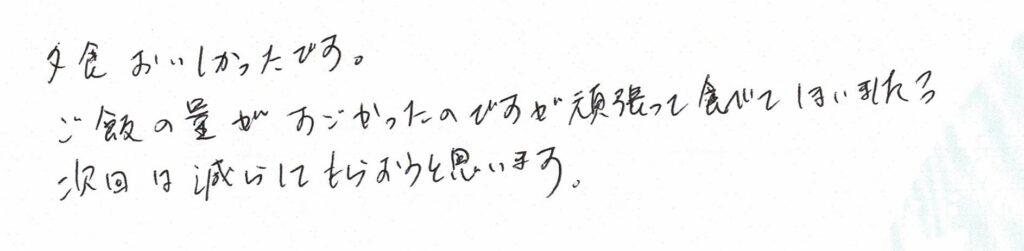 夕食おいしかったです。
ご飯の量がすごかったのですが頑張って食べてしまいましたう
次回は減らしてもらおうと思います。